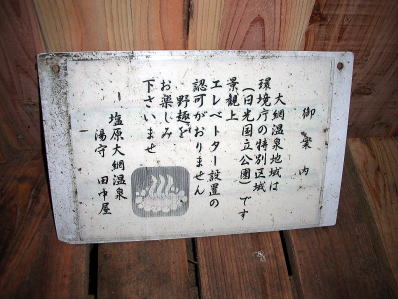 御案内
大網温泉地域は
環境庁の特別区域
(日光国立公園)です
景観上
エレベーター設置の
認可がおりません
野趣を
お楽しみ
下さいませ
塩原大網温泉
湯守 田中屋